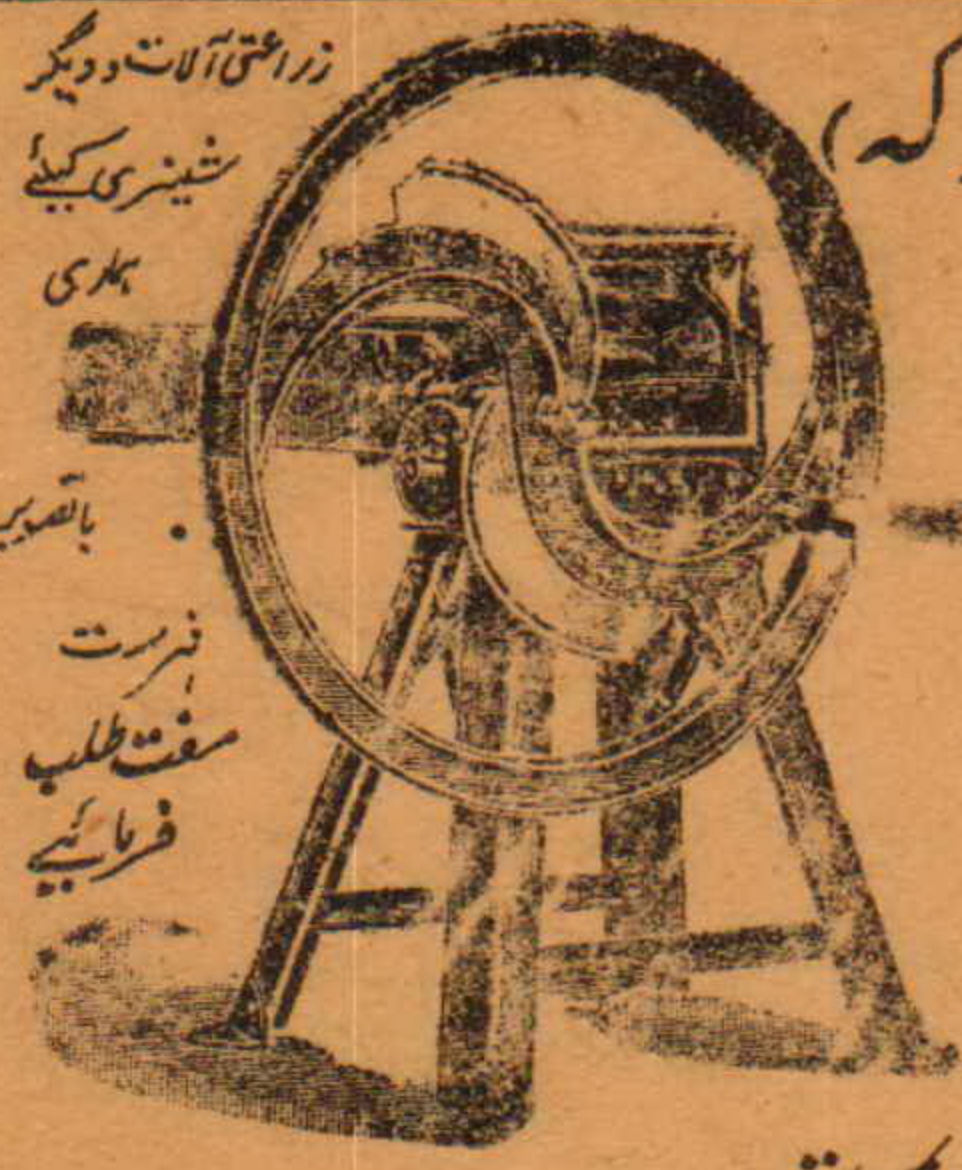 زراعتی آلات و دیگر
مشینری کیلئے
ہماری
باتصویر
فہرست
مفت طلب
فرمائیے
کہ